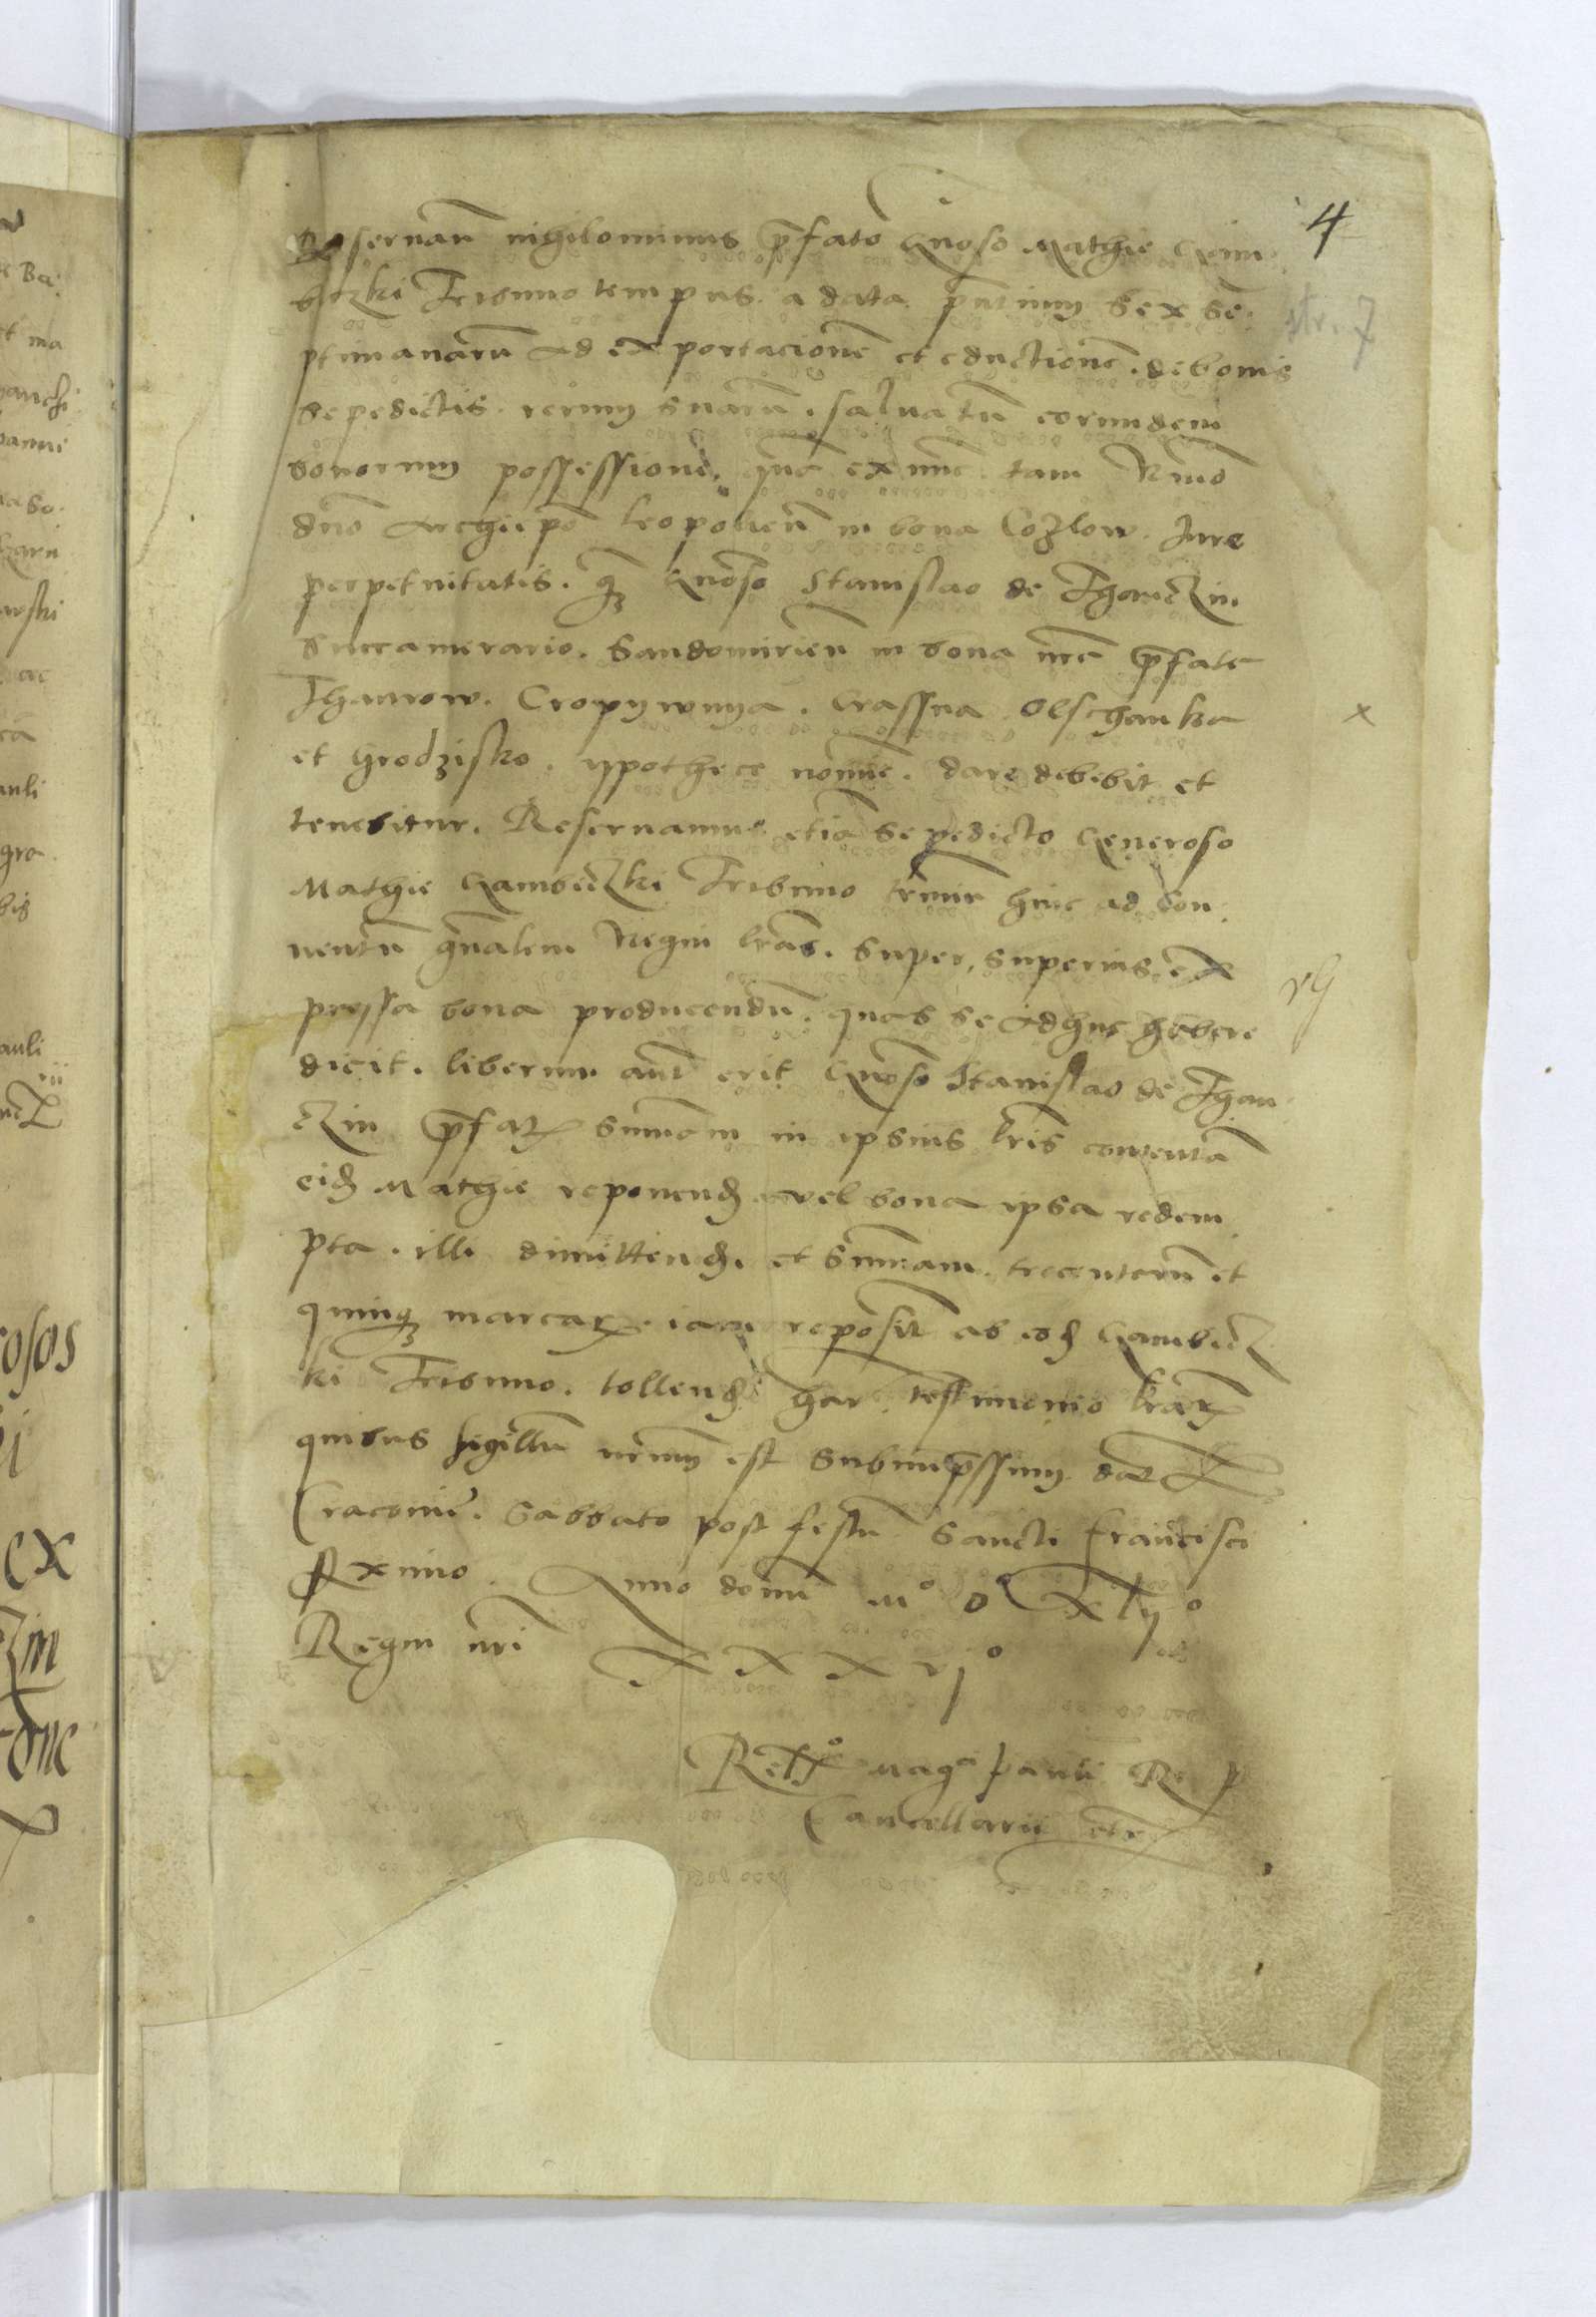 4
str. 7
Reservam̄ nihilominus p̄fato Gn̄oso Mathie Gam
beczki Tribuno tempus. a data p̄ntium sex se
ptimanarū ad exportacionē et eductionē. de bonis
sepedictis. rerum suarū. salua tn̄ eorundem
bonorum possessione. quā ex nunc tam R̄mo
dn̄o Archiep̄o Leopolien̄ in bona Cozlow. Jure
perpetuitatis. q̄ Gn̄oso Stanislao de Thanczin
Succamerario. Sandomirien̄ in bona vr̄e p̄fate
Thaurow. Cropywnya. Crassna Olschanka
et Grodzisko. ypothece nomine. dare debebit et
tenebitur. Reseruamus etiā sepedicto Generoso
Mathie Gambeczki Tribuno tr̄mim̄ hinc ad Con
uentū gn̄alem Regni lr̄as. super, superius ex
pressa bona producendū. quas se adhuc habere
dicit. liberum aut̄ erit Gn̄oso Stanislao de Than
czin p̄fatā summam in ipsius lr̄is contentā
eid̄ Mathie reponend̄ vel bona ipsa redem
pta. illi dimittend̄. et Summam. trecentarū et
quinq̨ marcar̄. iam reposit̄ ab eod̄ Gambecz
ki Tribuno. tollend̄ har̄ testimonio lr̄ar̄
quibus sigillū nr̄um est subimp̄ssum dat̄
Cracovie. Sabbato post festū Sancti Francisci
p̄ximo. Anno domini M° D° xlij°
Regni nr̄i xxxvj°
x
Rel̄° Mag̃ci Pauli R P
Cancellarii etc̄